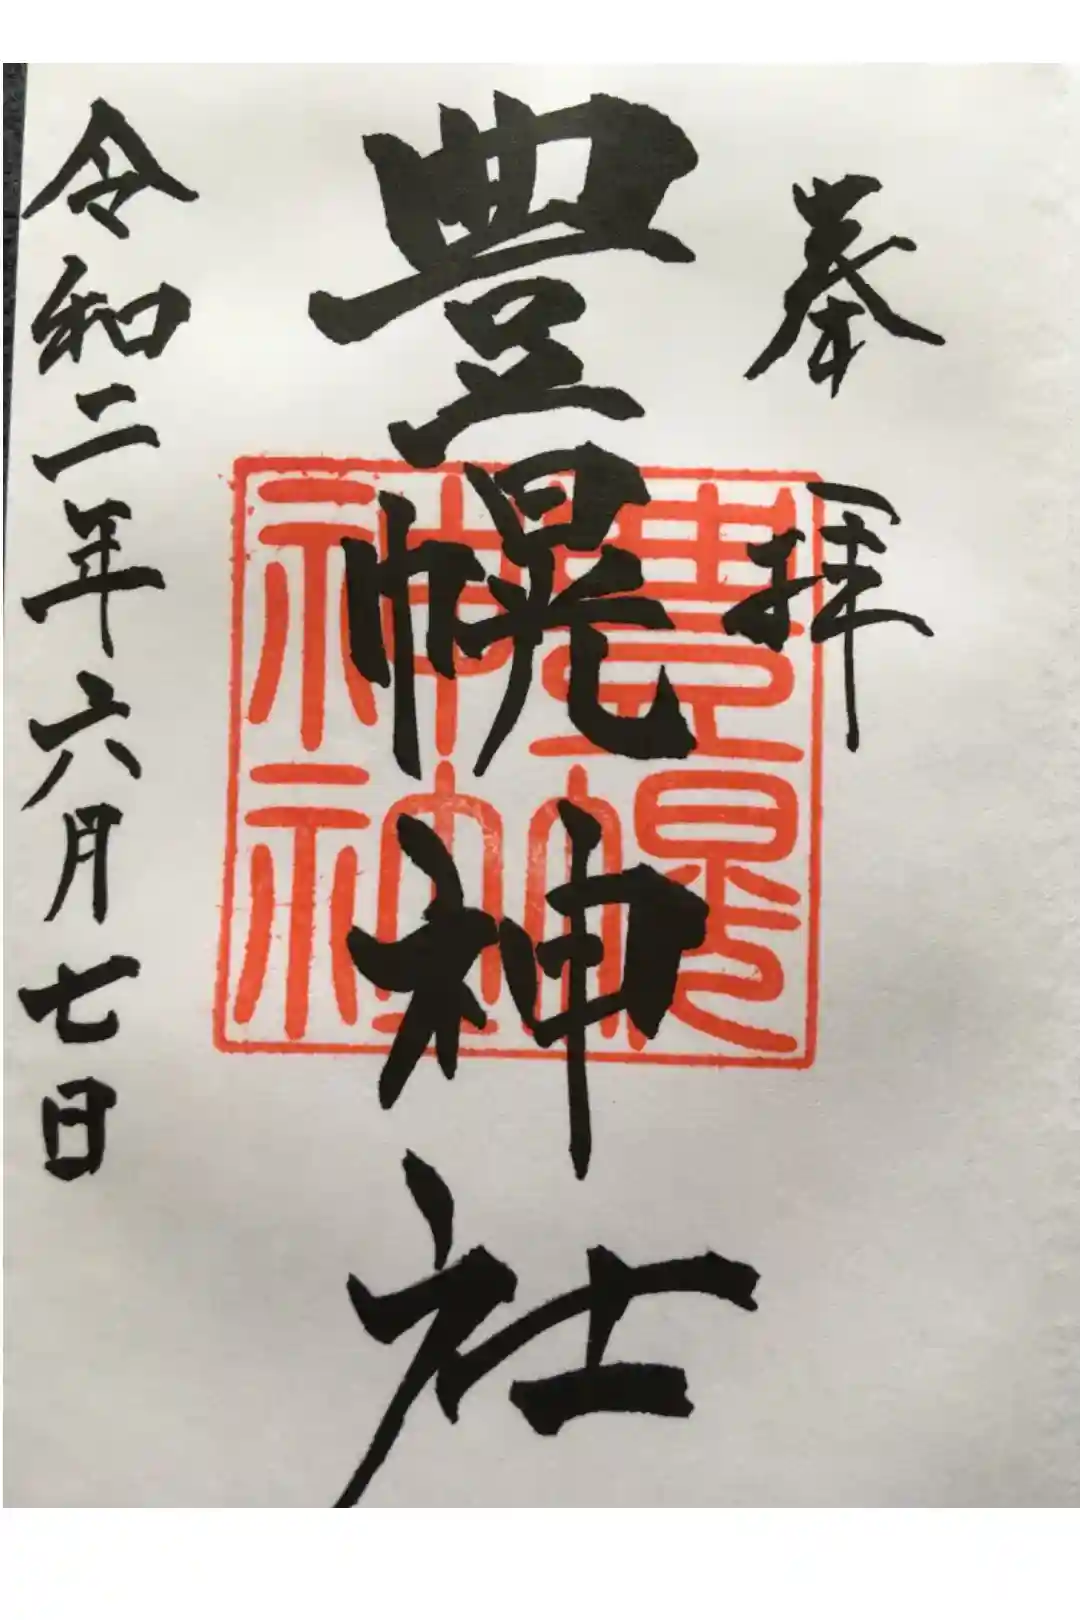 奉拝
豊幌神社
豊幌神社神社
令和二年六月七日